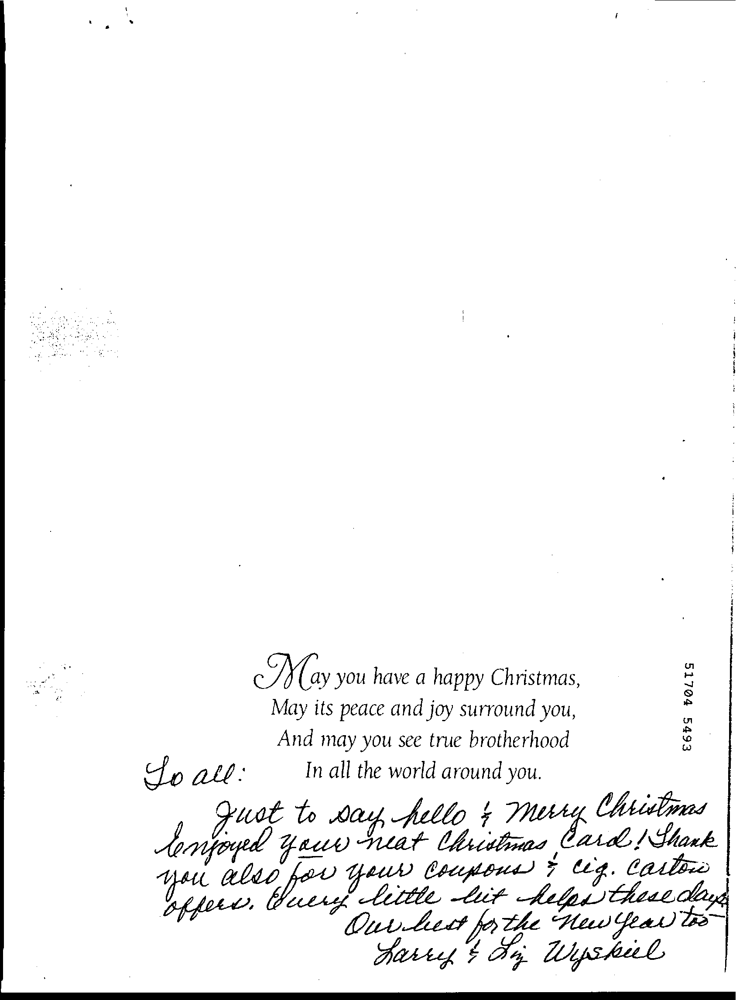 May you have a happy Christmas,
May its peace and joy surround you,
And may you see true brotherhood
In all the world around you.
To all:
Just to say hello & Merry Christmas
Enjoyed your neat Christmas Card! Thank
you also for your coupons & cig. carton
offers. Every little bit helps these days
Our best for the New Year too
Larry & Liz Wyskiel
51704 5493